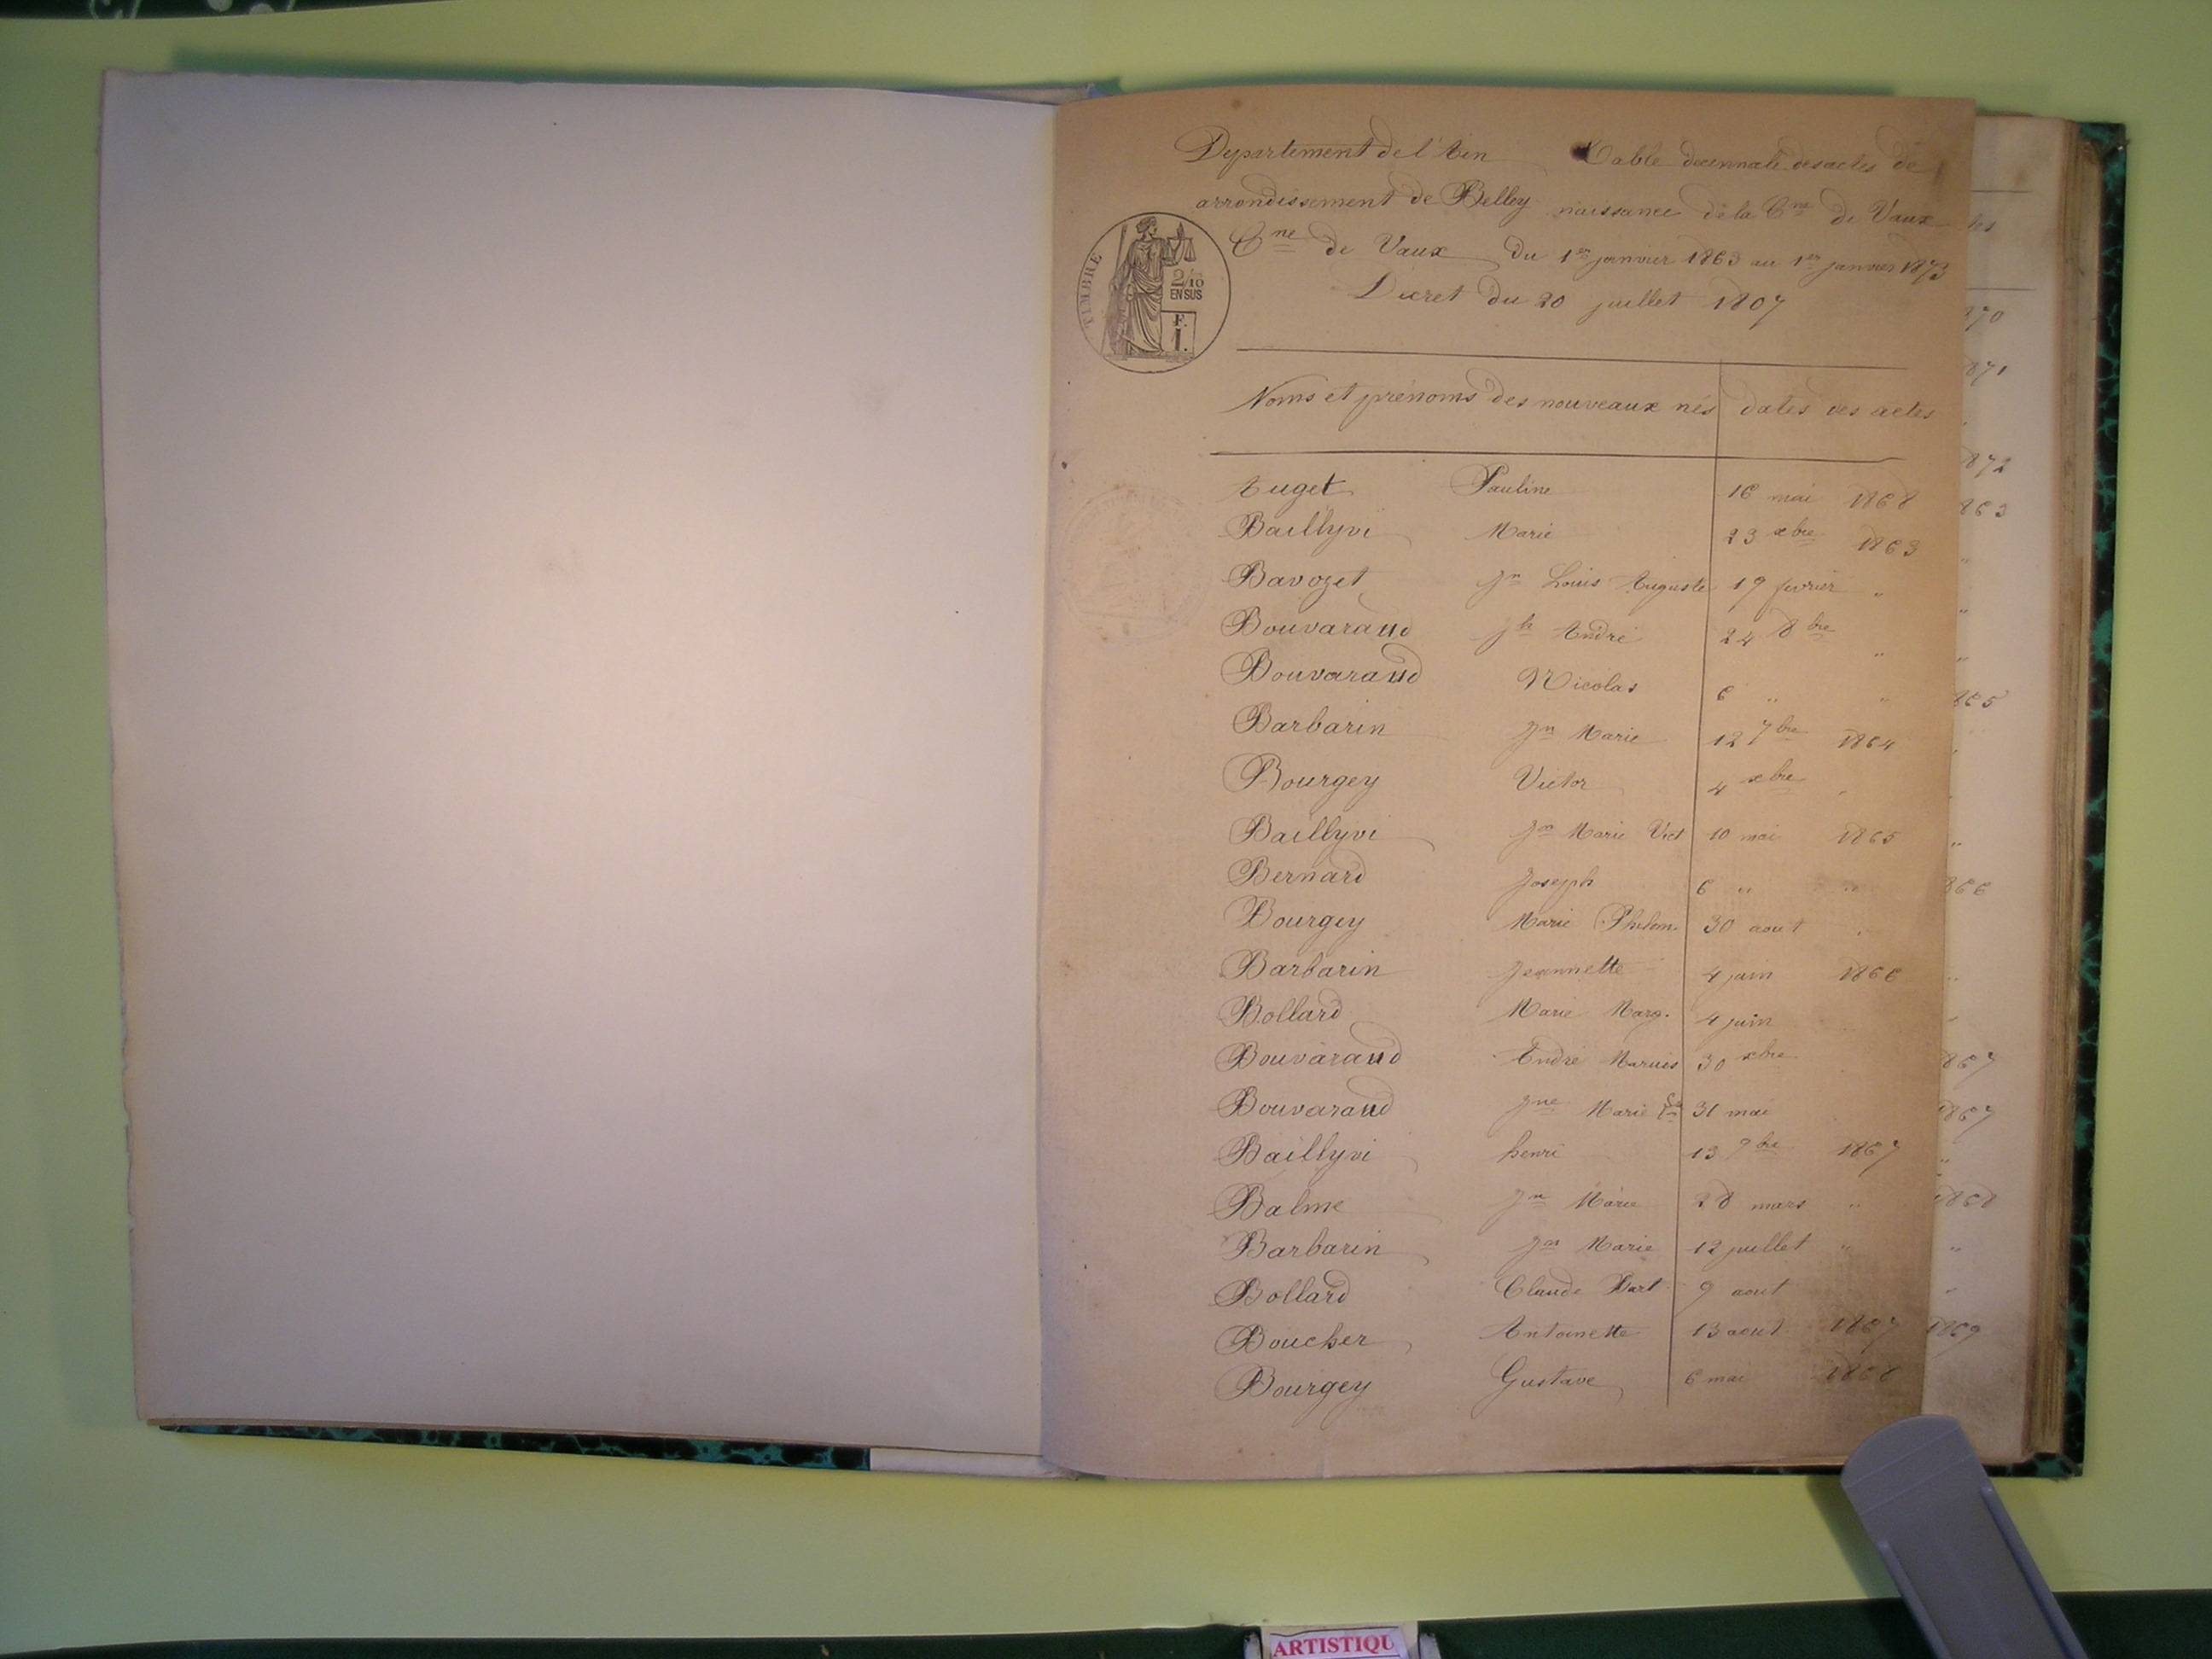 Departement de l'Ain Table decennale des actes de
arrondissement de Belley naissance de la Cne de Vaux
Cne de Vaux du 1er janvier 1863 au 1er janvier 1873
Décret du 20 juillet 1807
TIMBRE
2/10
EN SUS
F.
1.
Noms et prénoms des nouveaux nés dates des actes
Auget Pauline 16 mai 1868
Baillyvi Marie 23 xbre 1863
Bavozet Jn Louis Auguste 19 fevrier "
Bouvaraud Jh André 24 8bre "
Bouvaraud Nicolas 6 " "
Barbarin Jn Marie 12 7bre 1864
Bourgey Victor 4 xbre "
Baillyvi Marie Vict 10 mai 1865
Bernard Joseph 6 " "
Bourgey Marie Philom. 30 aout "
Barbarin Jeannette 4 juin 1866
Bollard Marie Marg. 4 juin
Bouvaraud André Marius 30 xbre
Bouvaraud Jne Marie 31 mai
Baillyvi henri 13 9bre 1867
Balme Jn Marie 28 mars "
Barbarin Jn Marie 12 juillet "
Bollard Claude Bart. 9 aout
Boucher Antoinette 13 aout 1867
Bourgey Gustave 6 mai 1868
870
871
872
863
"
"
"
865
"
866
"
867
1867
"
1868
"
1869
ARTISTIQU